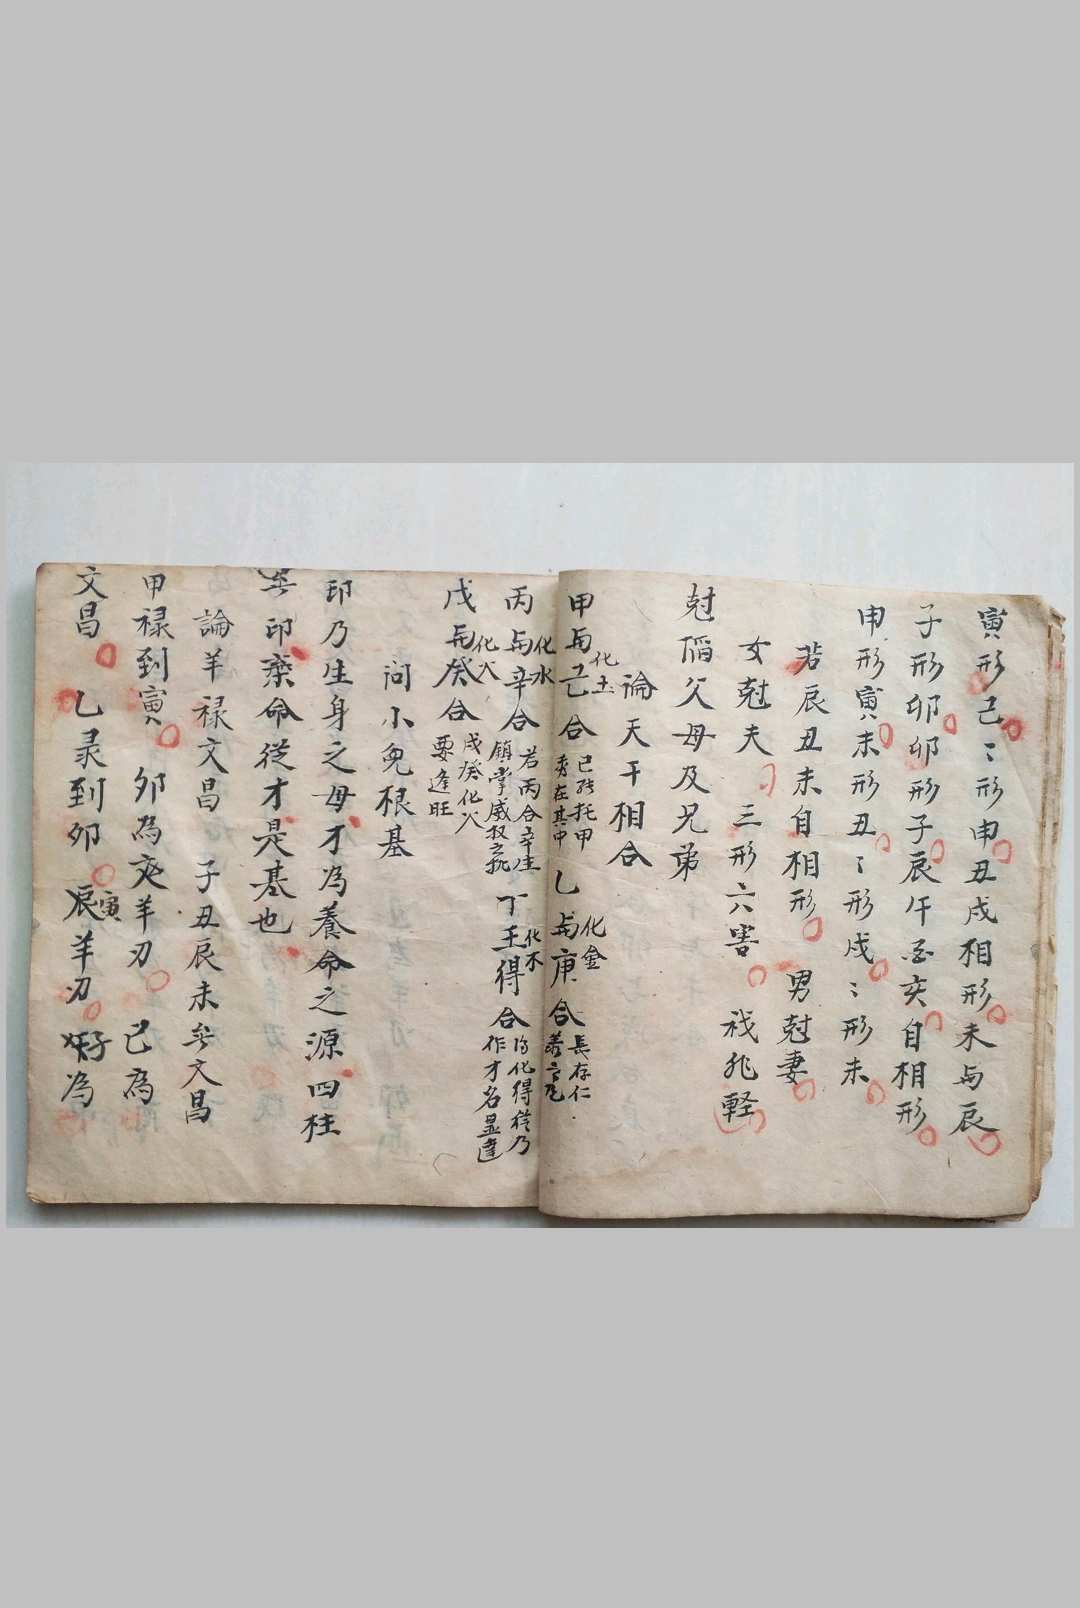 寅形己〻形申丑戌相形未与辰
子形卯卯形子辰午酉亥自相形
申形寅未形丑〻形戌〻形未
若辰丑未自相形 男尅妻
女尅夫 三形六害 非輕
尅 父母及兄弟
論天干相合
甲与己合 化土 己 托甲 秀在其中 乙与庚合 化金 長存仁
丙与辛合 化水 若丙合辛生 鎮掌威权之 丁壬得合 化木 化得 乃 作才名显達
戊与癸合 化火 戊癸化火 要逢旺
问小兒根基
印乃生身之母才為養命之源四柱
無印棄命從才是基也
論羊禄文昌 子丑辰未無文昌
甲禄到寅 卯為 羊刃 己為
文昌 乙录到卯 辰寅羊刃 好為